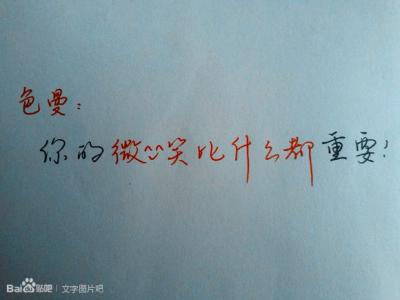 色曼：
你的微^^笑比什么都重要！
Bai度贴吧 | 文字图片吧